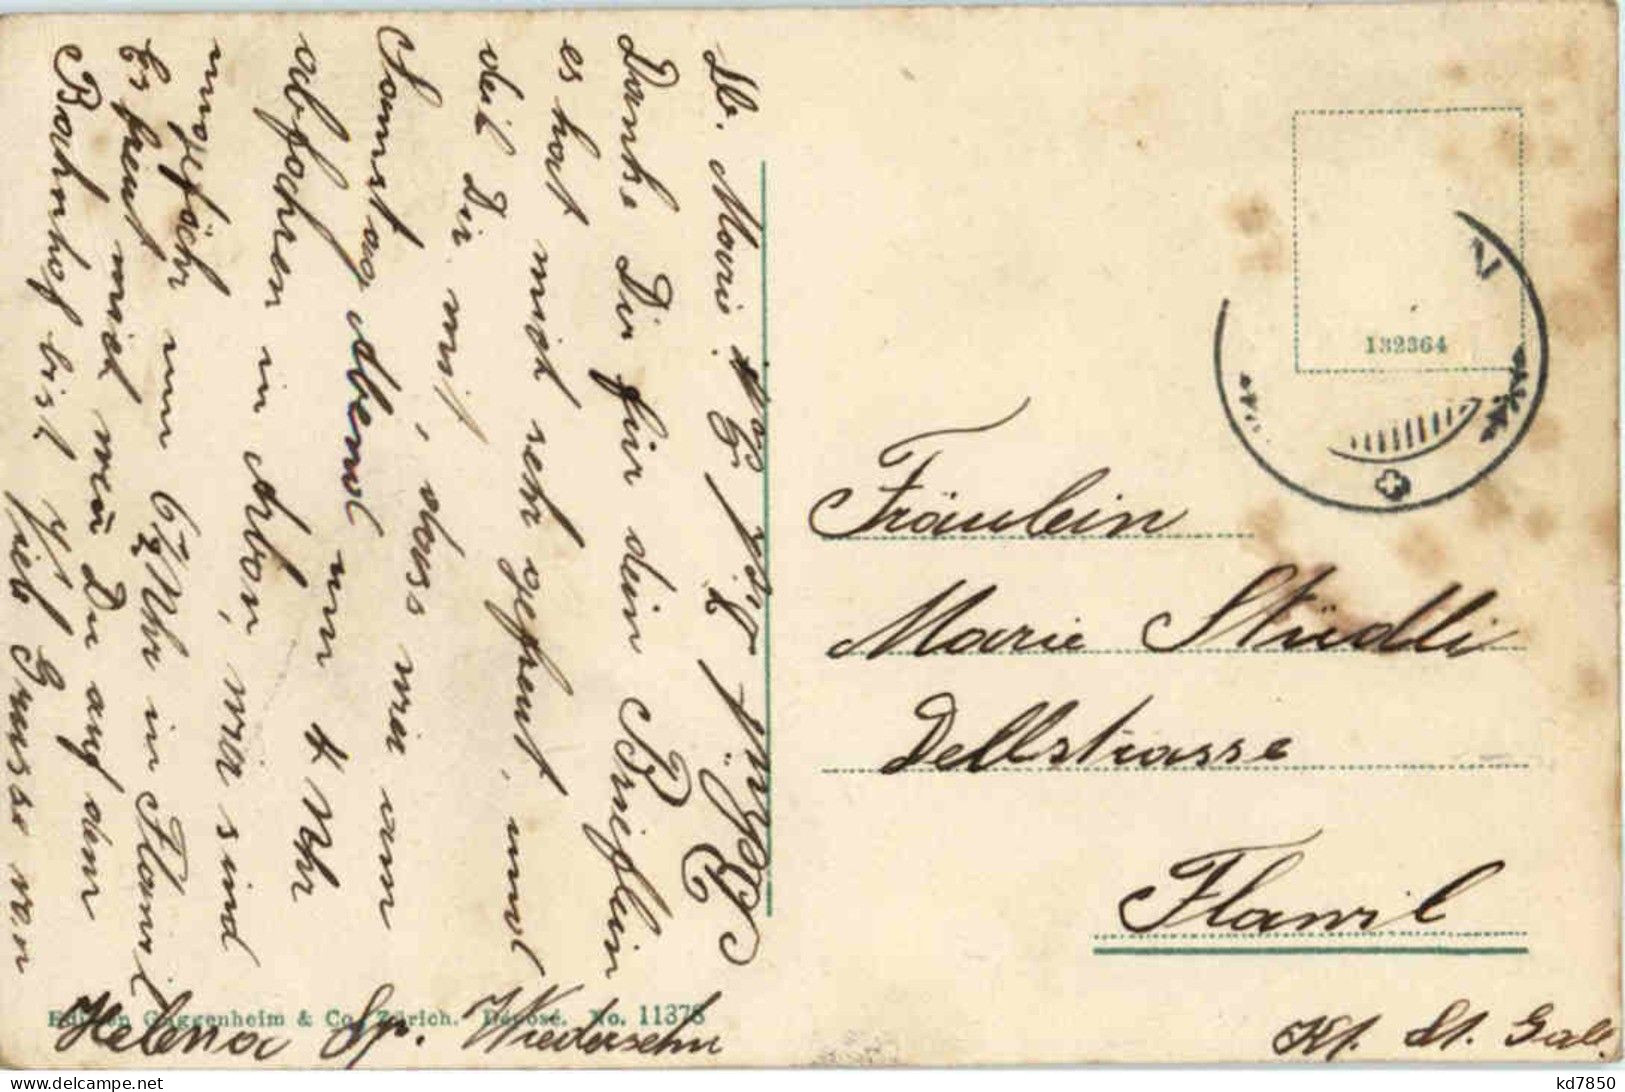 Lb. Marie!
Danke Dir für dein Brieflein
es hat mich sehr gefreut, und
teil Dir mit, dass wir am
Samstag Abend um 4 Uhr
abfahren in Arbon, wir sind
ungefähr um 6½ Uhr in Flawil
Es freut mich wen Du auf dem
Bahnhof bist
Viele Grüsse von
Helena Sp. Wiedersehn
Edition Guggenheim & Co. Zürich. Déposé. No. 11378
132364
N
Fräulein
Marie Stüdli
Dellstrasse
Flawil
Kt. St. Gall.
kd7850